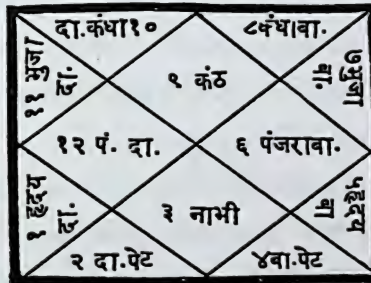 दा.कंधा१० ८कंधावा.
११ भुजा दा. ९ कंठ ७भुजा वा.
१२ पं. दा. ६ पंजरावा.
१ हृदय दा. ३ नाभी ५हृदय वा
२ दा.पेट ४वा.पेट